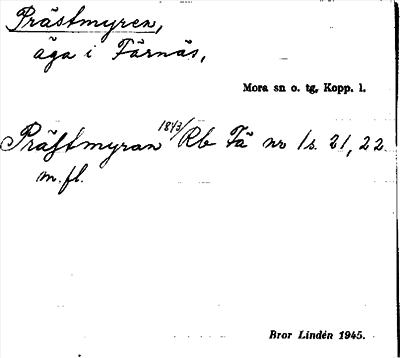 Prästmyren,
äga i Färnäs,
Mora sn o. tg, Kopp. l.
Prästmyran 1843/Rb Fä nr 1 s. 21, 22
m. fl.
Bror Lindén 1945.